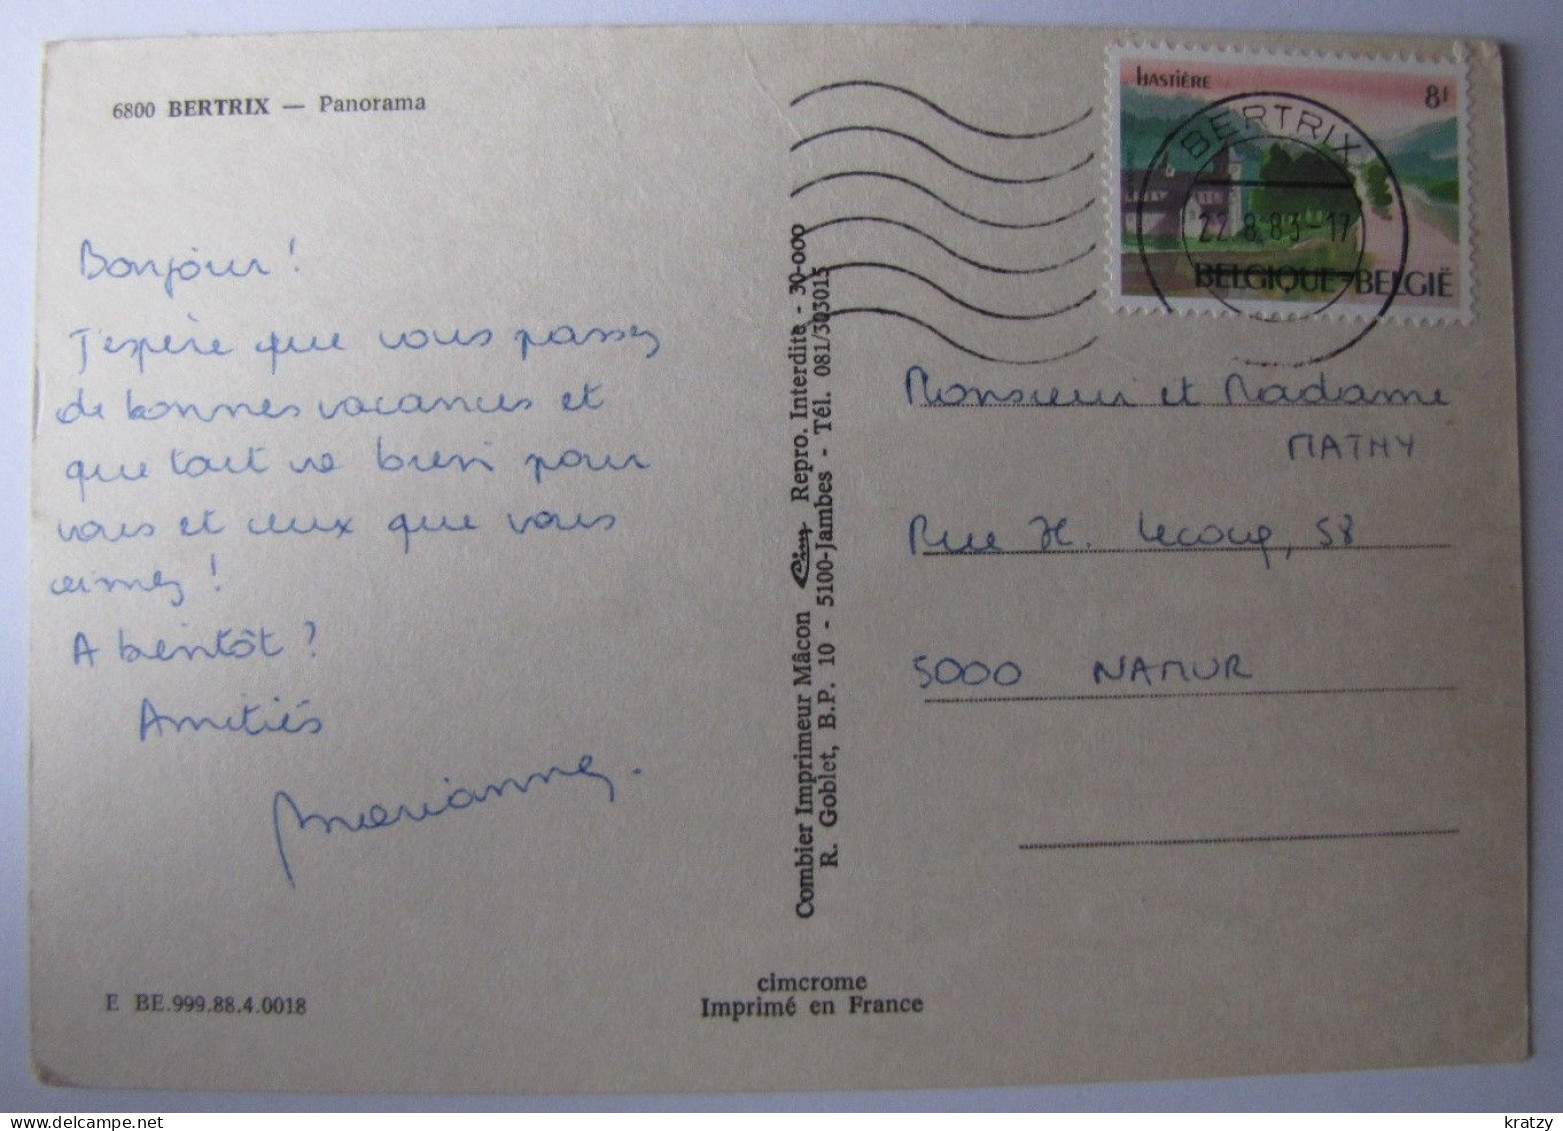 6800 BERTRIX — Panorama
Bonjour !
J'espère que vous passez
de bonnes vacances et
que tout va bien pour
vous et ceux que vous
aimez !
A bientôt ?
Amitiés
Marianne.
E BE.999.88.4.0018
Combier Imprimeur Mâcon Cim Repro. Interdite - 30-000
R. Goblet, B.P. 10 - 5100-Jambes - Tél. 081/303015
cimcrome
Imprimé en France
HASTIÈRE 8f
BELGIQUE-BELGIË
BERTRIX
22.8.83-17
Monsieur et Madame
MATHY
Rue H. Lecocq, 58
5000 NAMUR
www.delcampe.net
kratzy